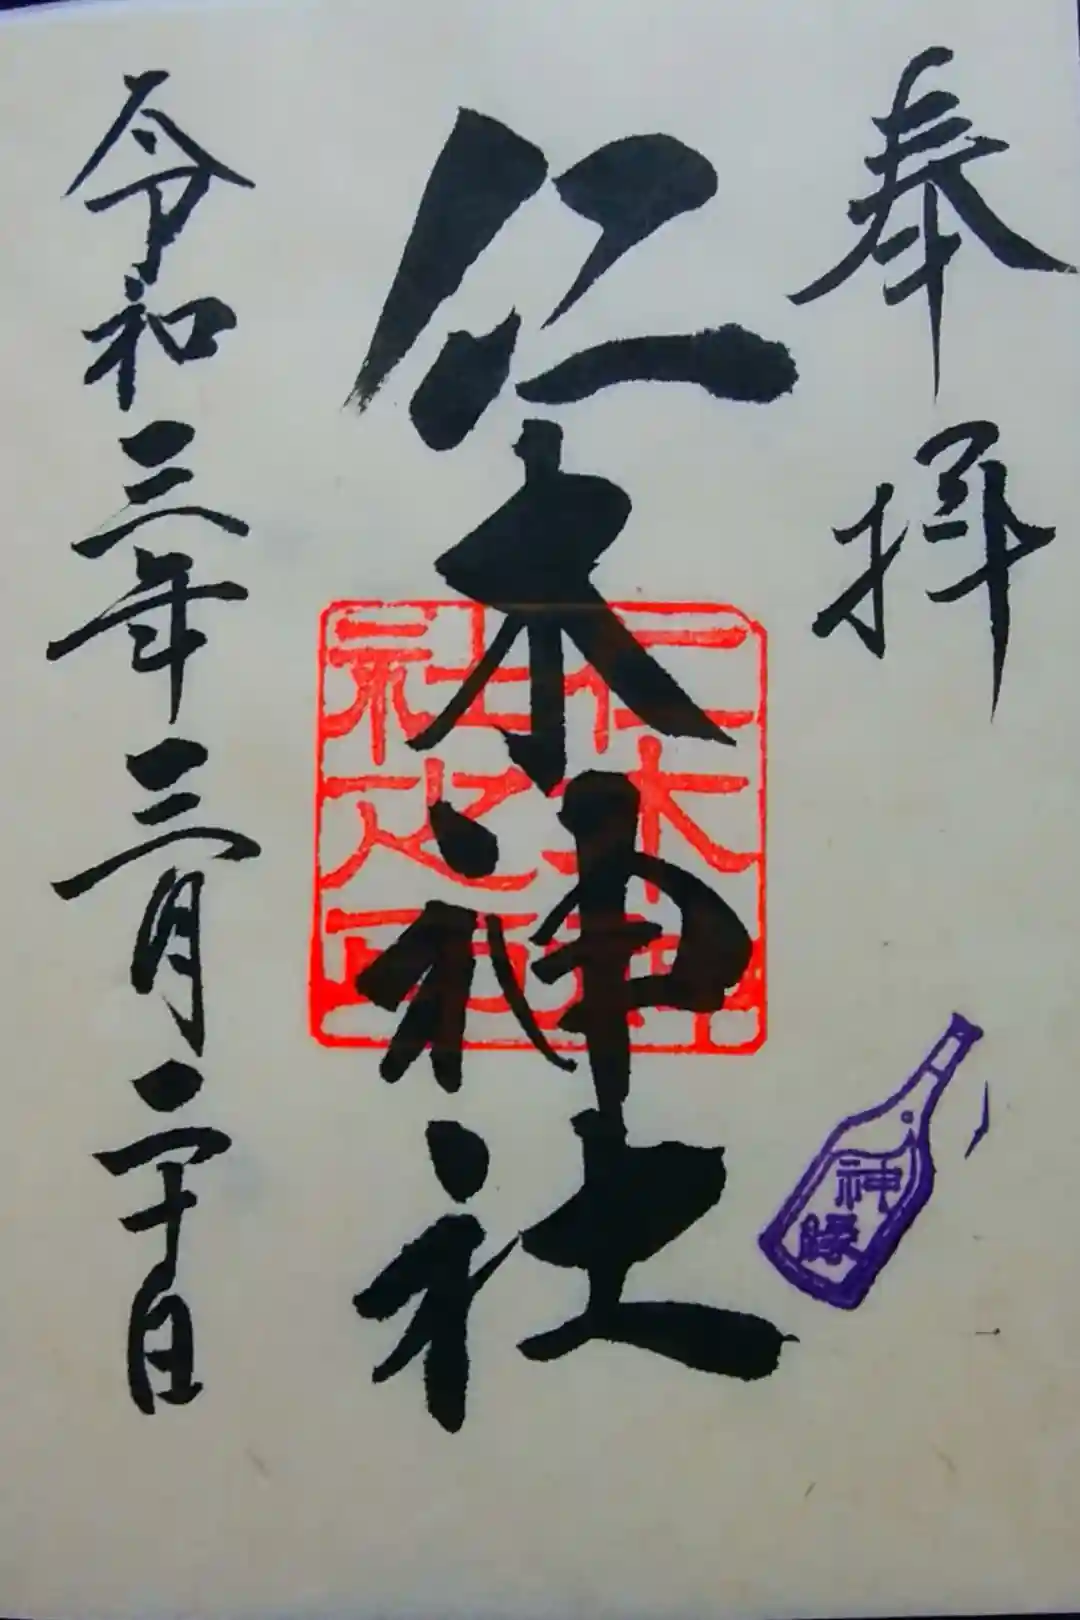 奉拝
仁木神社
仁木神社之印
神縁
令和三年三月二十日